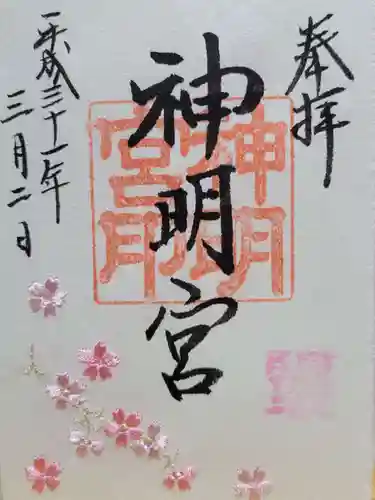 奉拝
神明宮
神明宮印
平成三十一年
三月二日